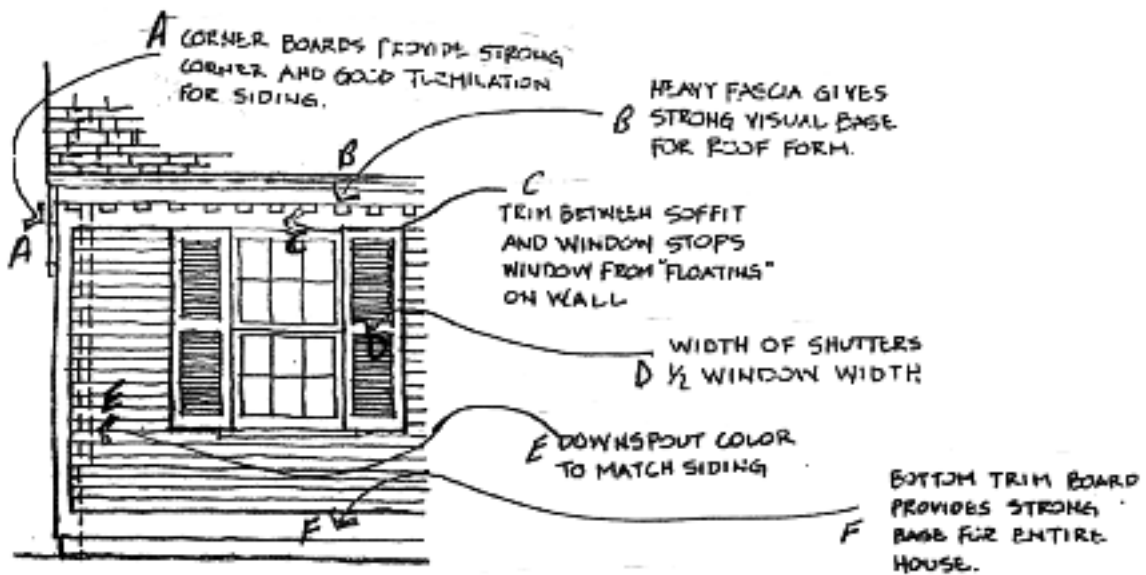 A CORNER BOARDS PROVIDE STRONG
CORNER AND GOOD TURMILATION
FOR SIDING.
HEAVY FASCIA GIVES
B STRONG VISUAL BASE
FOR ROOF FORM.
B
C
TRIM BETWEEN SOFFIT
AND WINDOW STOPS
WINDOW FROM "FLOATING"
ON WALL
A
C
D
WIDTH OF SHUTTERS
D ½ WINDOW WIDTH
E
E DOWNSPOUT COLOR
TO MATCH SIDING
BOTTOM TRIM BOARD
PROVIDES STRONG
F BASE FOR ENTIRE
HOUSE.
F